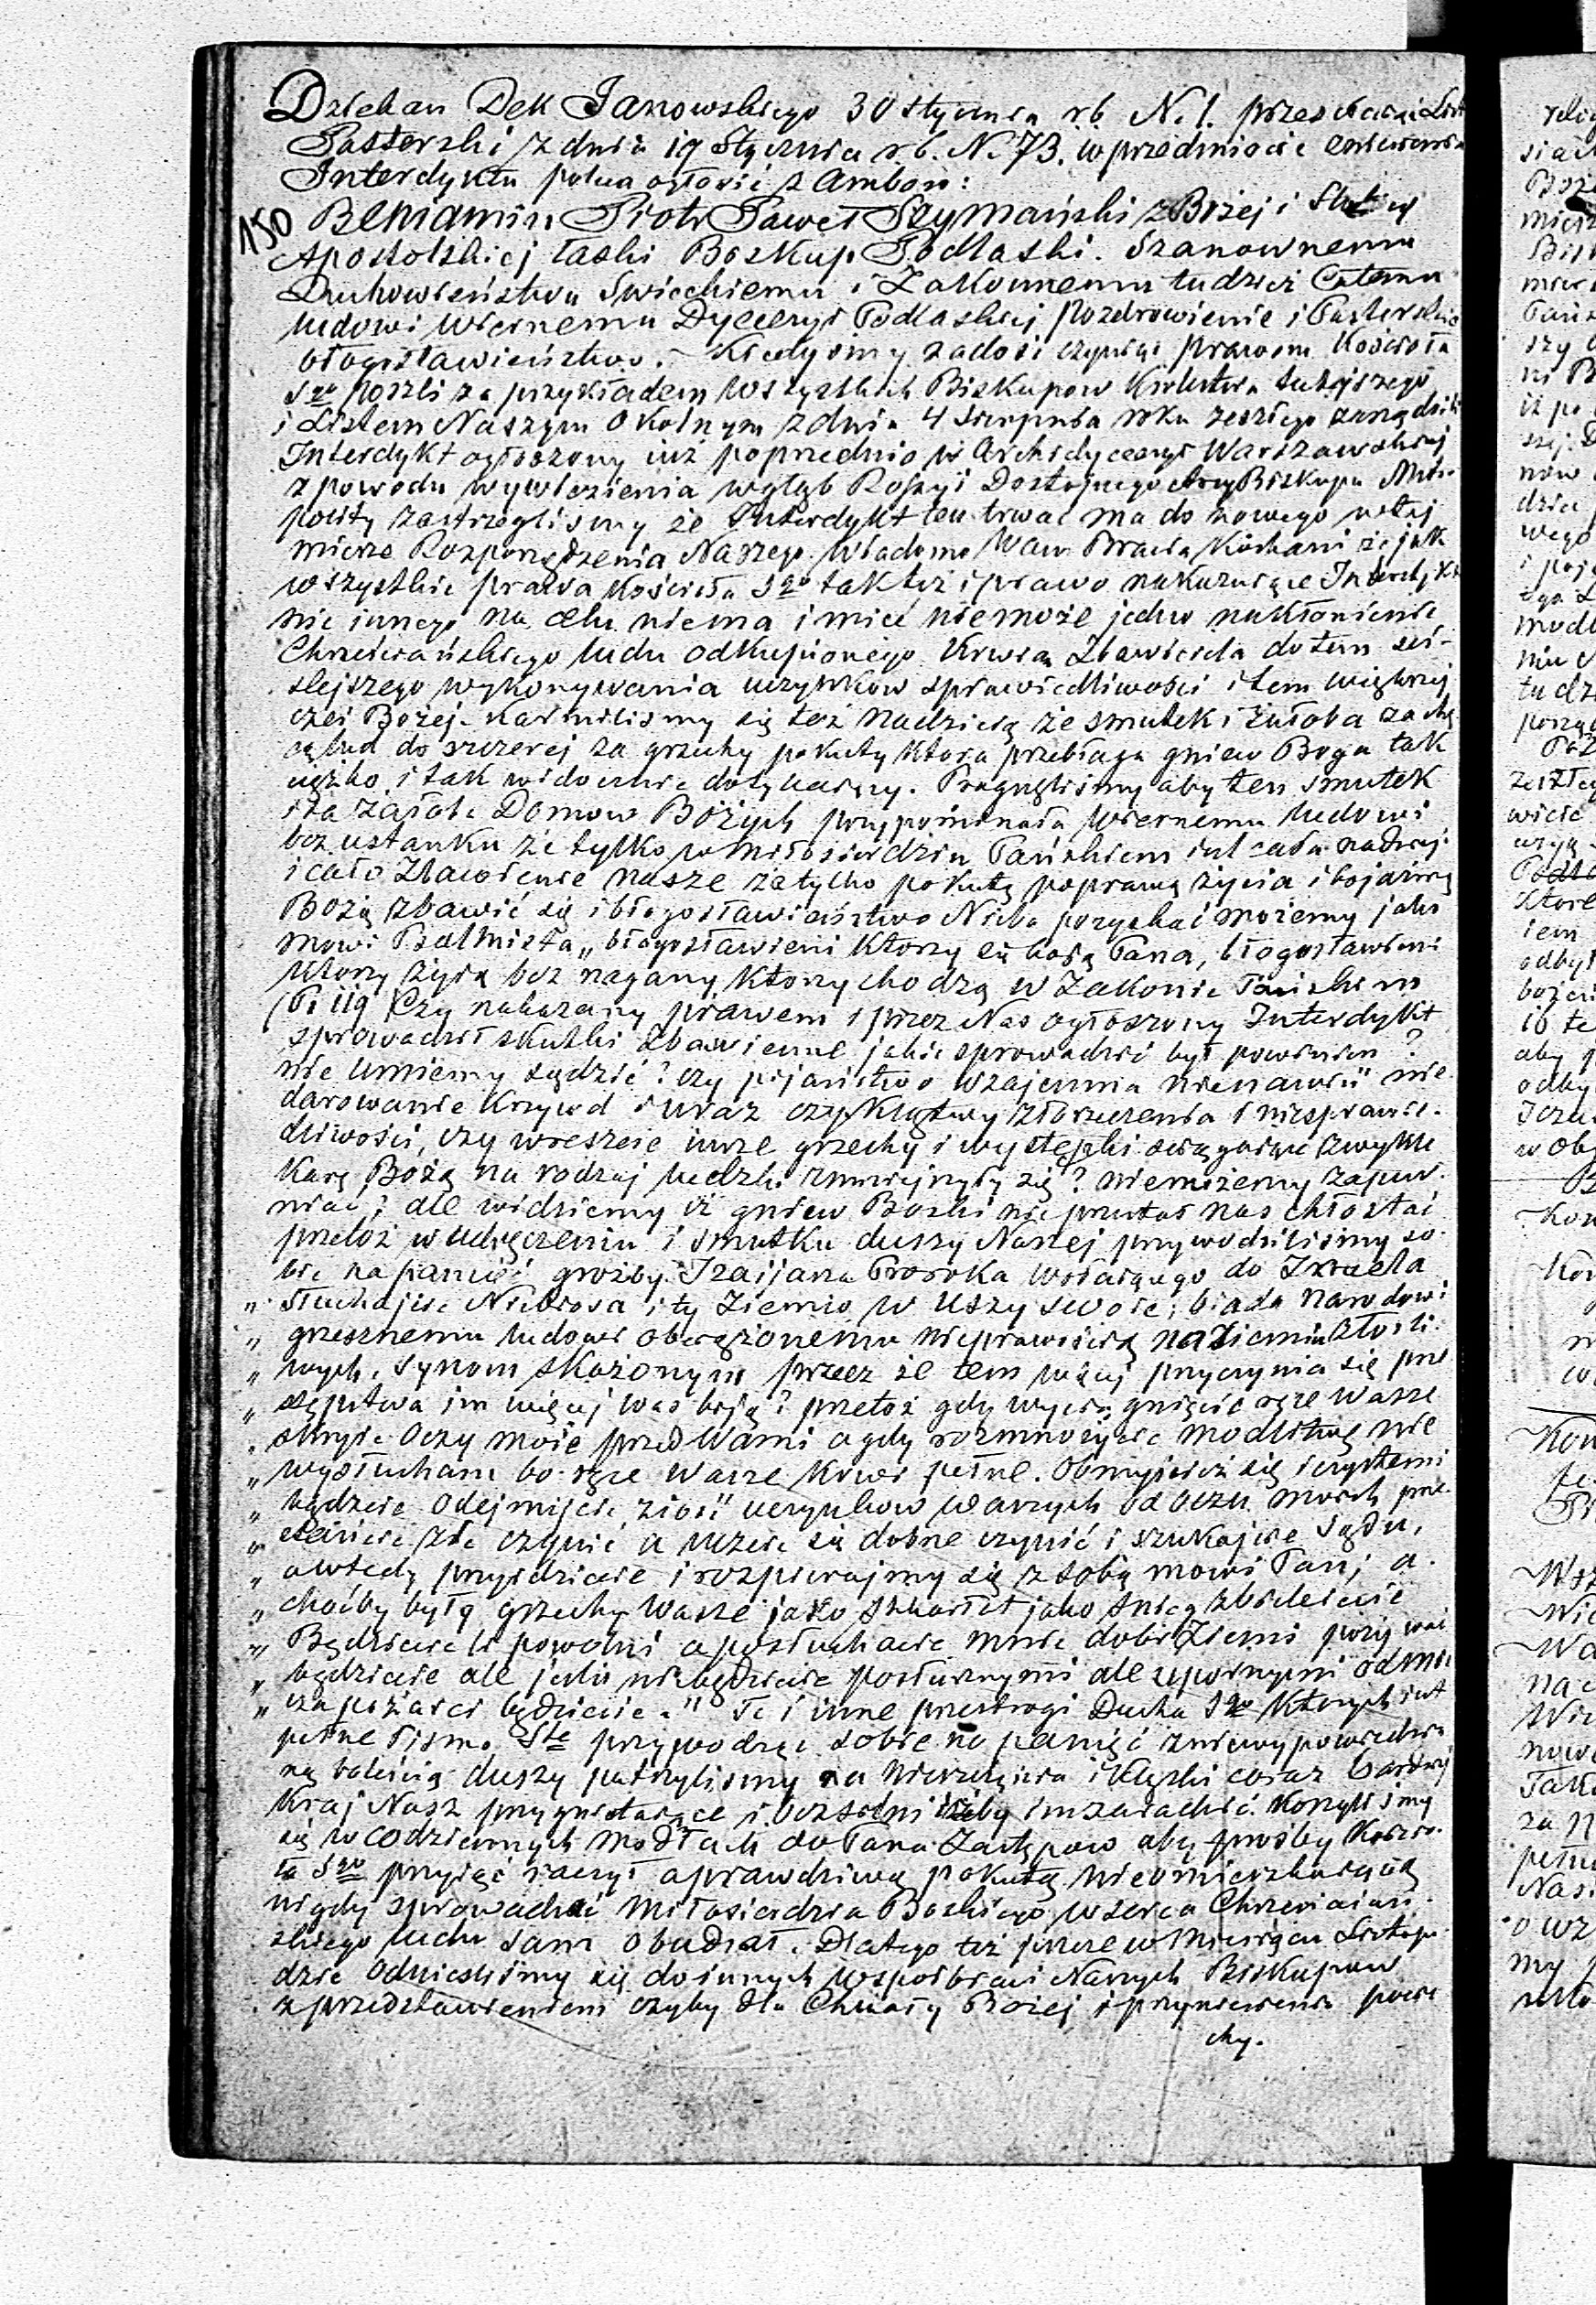 Dziekan Dek Janowskiego 30 stycznia rb. N. 1. przesyłając List
Pasterski z dnia 19 Stycznia rb. N. 73. w przedmiocie zniesienia
Interdyktu poleca ogłosić z Ambon:
150 Beniamin Piotr Paweł Szymański z Bożej i Stolicy
Apostolskiej łaski Biskup Podlaski. Szanownemu
Duchowieństwu Swieckiemu i Zakonnemu tudzież Całemu
ludowi wiernemu Dyecezyi Podlaskiej Pozdrowienie i Pasterskie
błogosławieństwo. Kiedyśmy zadość czyniąc prawom Kościoła
Sgo poszli za przykładem wszystkich Biskupow Krolestwa tutejszego
i Listem Naszym Okolnym z dnia 4 Sierpnia roku zeszłego zarządzili
Interdykt ogłoszony już poprzednio w Archidyecezyi Warszawskiej
z powodu wywiezienia wgłąb Rossyi Dostojnego Arcy Biskupa Metro-
polity zastrzeglismy że Interdykt ten trwać ma do nowego w tej
mierze Rozporządzenia Naszego. Wiadomo Wam Bracia Kochani że jak
wszystkie prawa Kościoła Sgo tak też i prawo nakazujące Interdykt
nic innego na celu niema i mieć niemoże jedno nakłonienie
Chrześciańskiego ludu odkupionego Krwią Zbawiciela do tem ści-
slejszego wykonywania uczynkow sprawiedliwości i tem większej
czci Bożej. Karmilismy się też nadzieją że smutek i żałoba zachę
cą lud do szczerej za grzechy pokuty ktora przebłaga gniew Boga tak
ciężko i tak widocznie dotykający. Pragnęlismy aby ten smutek
i ta żałoba Domow Bożych przypominała wiernemu ludowi
bez ustanku że tylko w miłosierdziu Pańskiem jest cała nadzieja
i całe Zbawienie nasze że tylko pokutą poprawą życia i bojaźnią
Bożą zbawić się i błogosławieństwo Nieba pozyskać możemy jako
mowi Psalmista „błogosławieni ktorzy się boją Pana, błogosławieni
ktorzy żyją bez nagany ktorzy chodzą w Zakonie Pańskim
(Ps 119 Czy nakazany prawem i przez Nas ogłoszony Interdykt
sprowadził skutki zbawienne jakie sprowadzić był powinien?
nie umiemy sądzić? czy pijaństwo wzajemna nienawiść nie
darowanie krzywd i uraz czy Klątwy złorzeczenia i niesprawie-
dliwości, czy wreszcie inne grzechy i występki sciągające zwykle
karę Bożą na rodzaj ludzki zmniejszyły się? niemożemy zapew-
niać; ale widziemy iż gniew Boski nie przestał nas chłostać
przetoż w udręczeniu i smutku duszy Naszej przywodzilismy so-
bie na pamięć groźby Izaijasza Proroka wołającego do Izraela
„ słuchajcie Niebiosa i ty Ziemio w uszy swoie; biada narodowi
„ grzesznemu ludowi obciążonemu nieprawością nasieniu złośli-
„ wych, synom skażonym przecz że tem więcej przyczynia się prze
„ stępstwa im więcej was biją? przetoż gdy wyciągniecie ręce wasze
„ skryię Oczy moie przed Wami a gdy rozmnożycie modlitwę nie
„ wysłucham bo ręce wasze krwi pełne. Obmyjcież się i czystemi
„ bądzcie odejmijcie złość uczynkow waszych od oczu moich prze-
„ stańcie źle czynić a uczcie się dobrze czynić i szukajcie sądu,
„ a wtedy przyidziecie i rozpierajmy się z sobą mowi Pan; a
„ choćby były grzechy wasze jako szkarłat jako snieg zbieleicie
„ Będziecie li powolni a posłuchacie mnie dobr Ziemi pożywać
„ będziecie ale jeśli niebędziecie posłusznymi ale upornymi od mie
„ cza pożarci będziecie." Te i inne przestrogi Ducha Sgo ktorych jest
pełne Pismo Ste przywodząc sobie na pamięć z niewypowiedzia
ną boleścią duszy patrzylismy na nieszczęścia i klęski coraz bardziej
Kraj Nasz przygniatające i bezsilni iżby im zaradzić. Korzylismy
się w codziennych modłach do Pana Zastępow aby prośby Kościo-
ła Sgo przyjąć raczył a prawdziwą pokutę nieomieszkającą
nigdy sprowadzać Miłosierdzia Boskiego w serca Chrześciań-
skiego ludu sam obudzał. Dlatego też jeszcze w Miesiącu Listopa-
dzie odnieslismy się do innych wspołbraci Naszych Biskupow
z przedstawieniem czyby dla Chwały Bożej i przyniesienia pocie
chy.